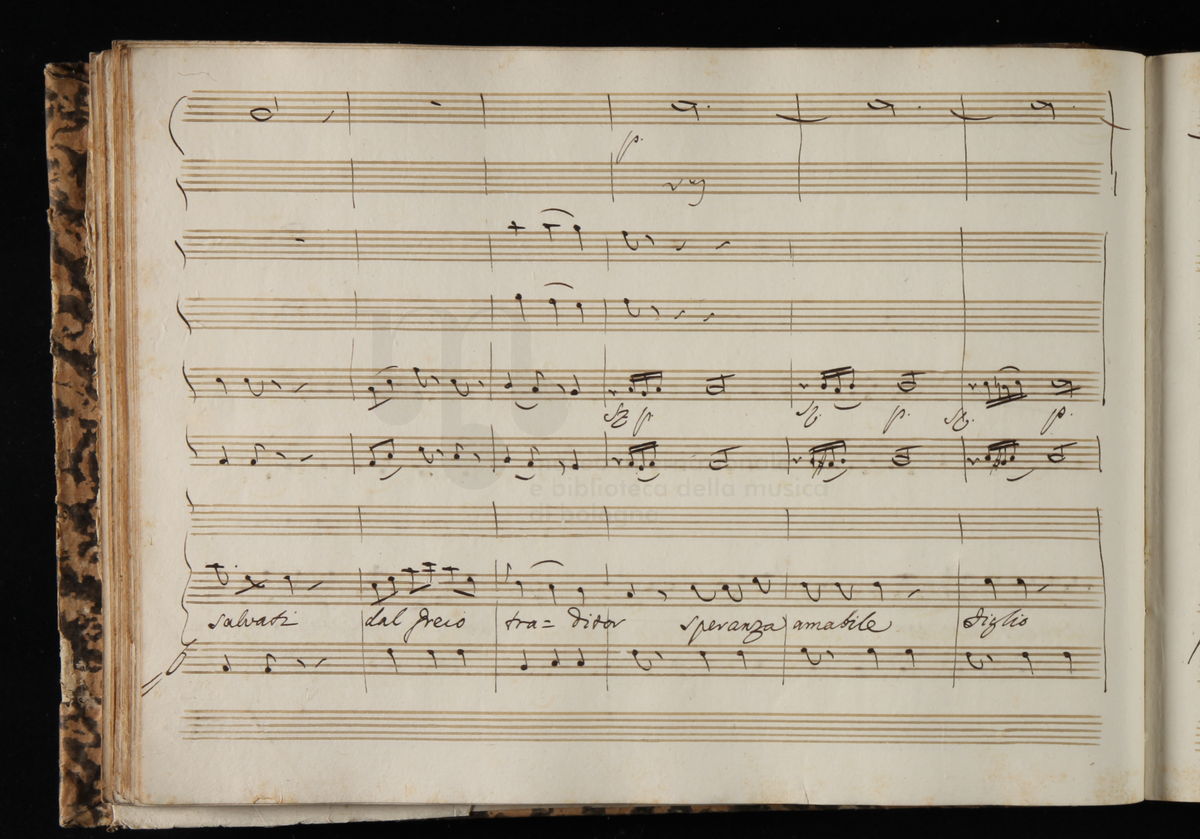 p.
sf p. sf. p. sf. p.
e biblioteca della musica
di bologna
salvati dal Greco tra= ditor speranza amabile figlio